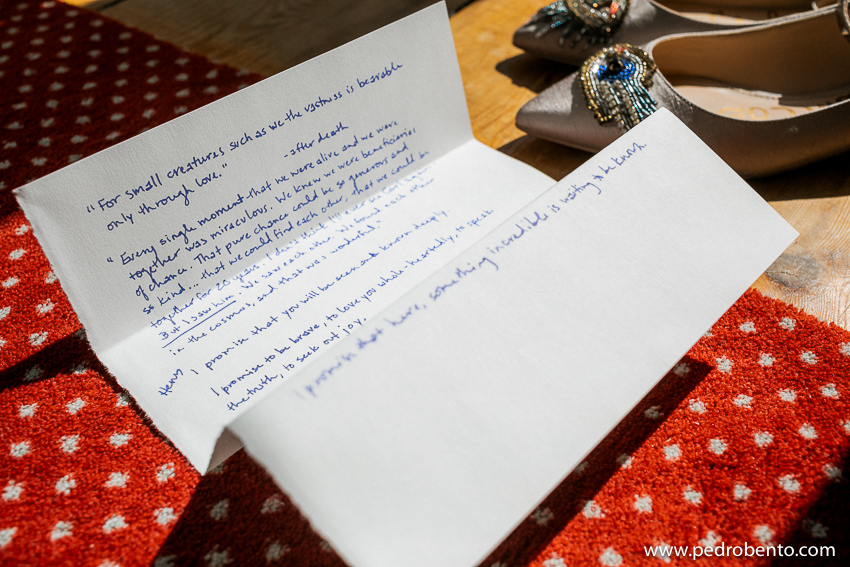 "For small creatures such as we the vastness is bearable
only through love."
-after death
"Every single moment that we were alive and we were
together was miraculous. We knew we were beneficiaries
of chance. That pure chance could be so generous and
so kind... that we could find each other, that we could be
together for 20 years. I don't think I'll ever see Carl again.
But I saw him. We saw each other. We found each other
in the cosmos, and that was wonderful."
I promise that you will be seen and known deeply.
I promise to be brave, to love you whole-heartedly, to speak
the truth, to seek out joy.
I promise that here, something incredible is waiting to be known.
www.pedrobento.com